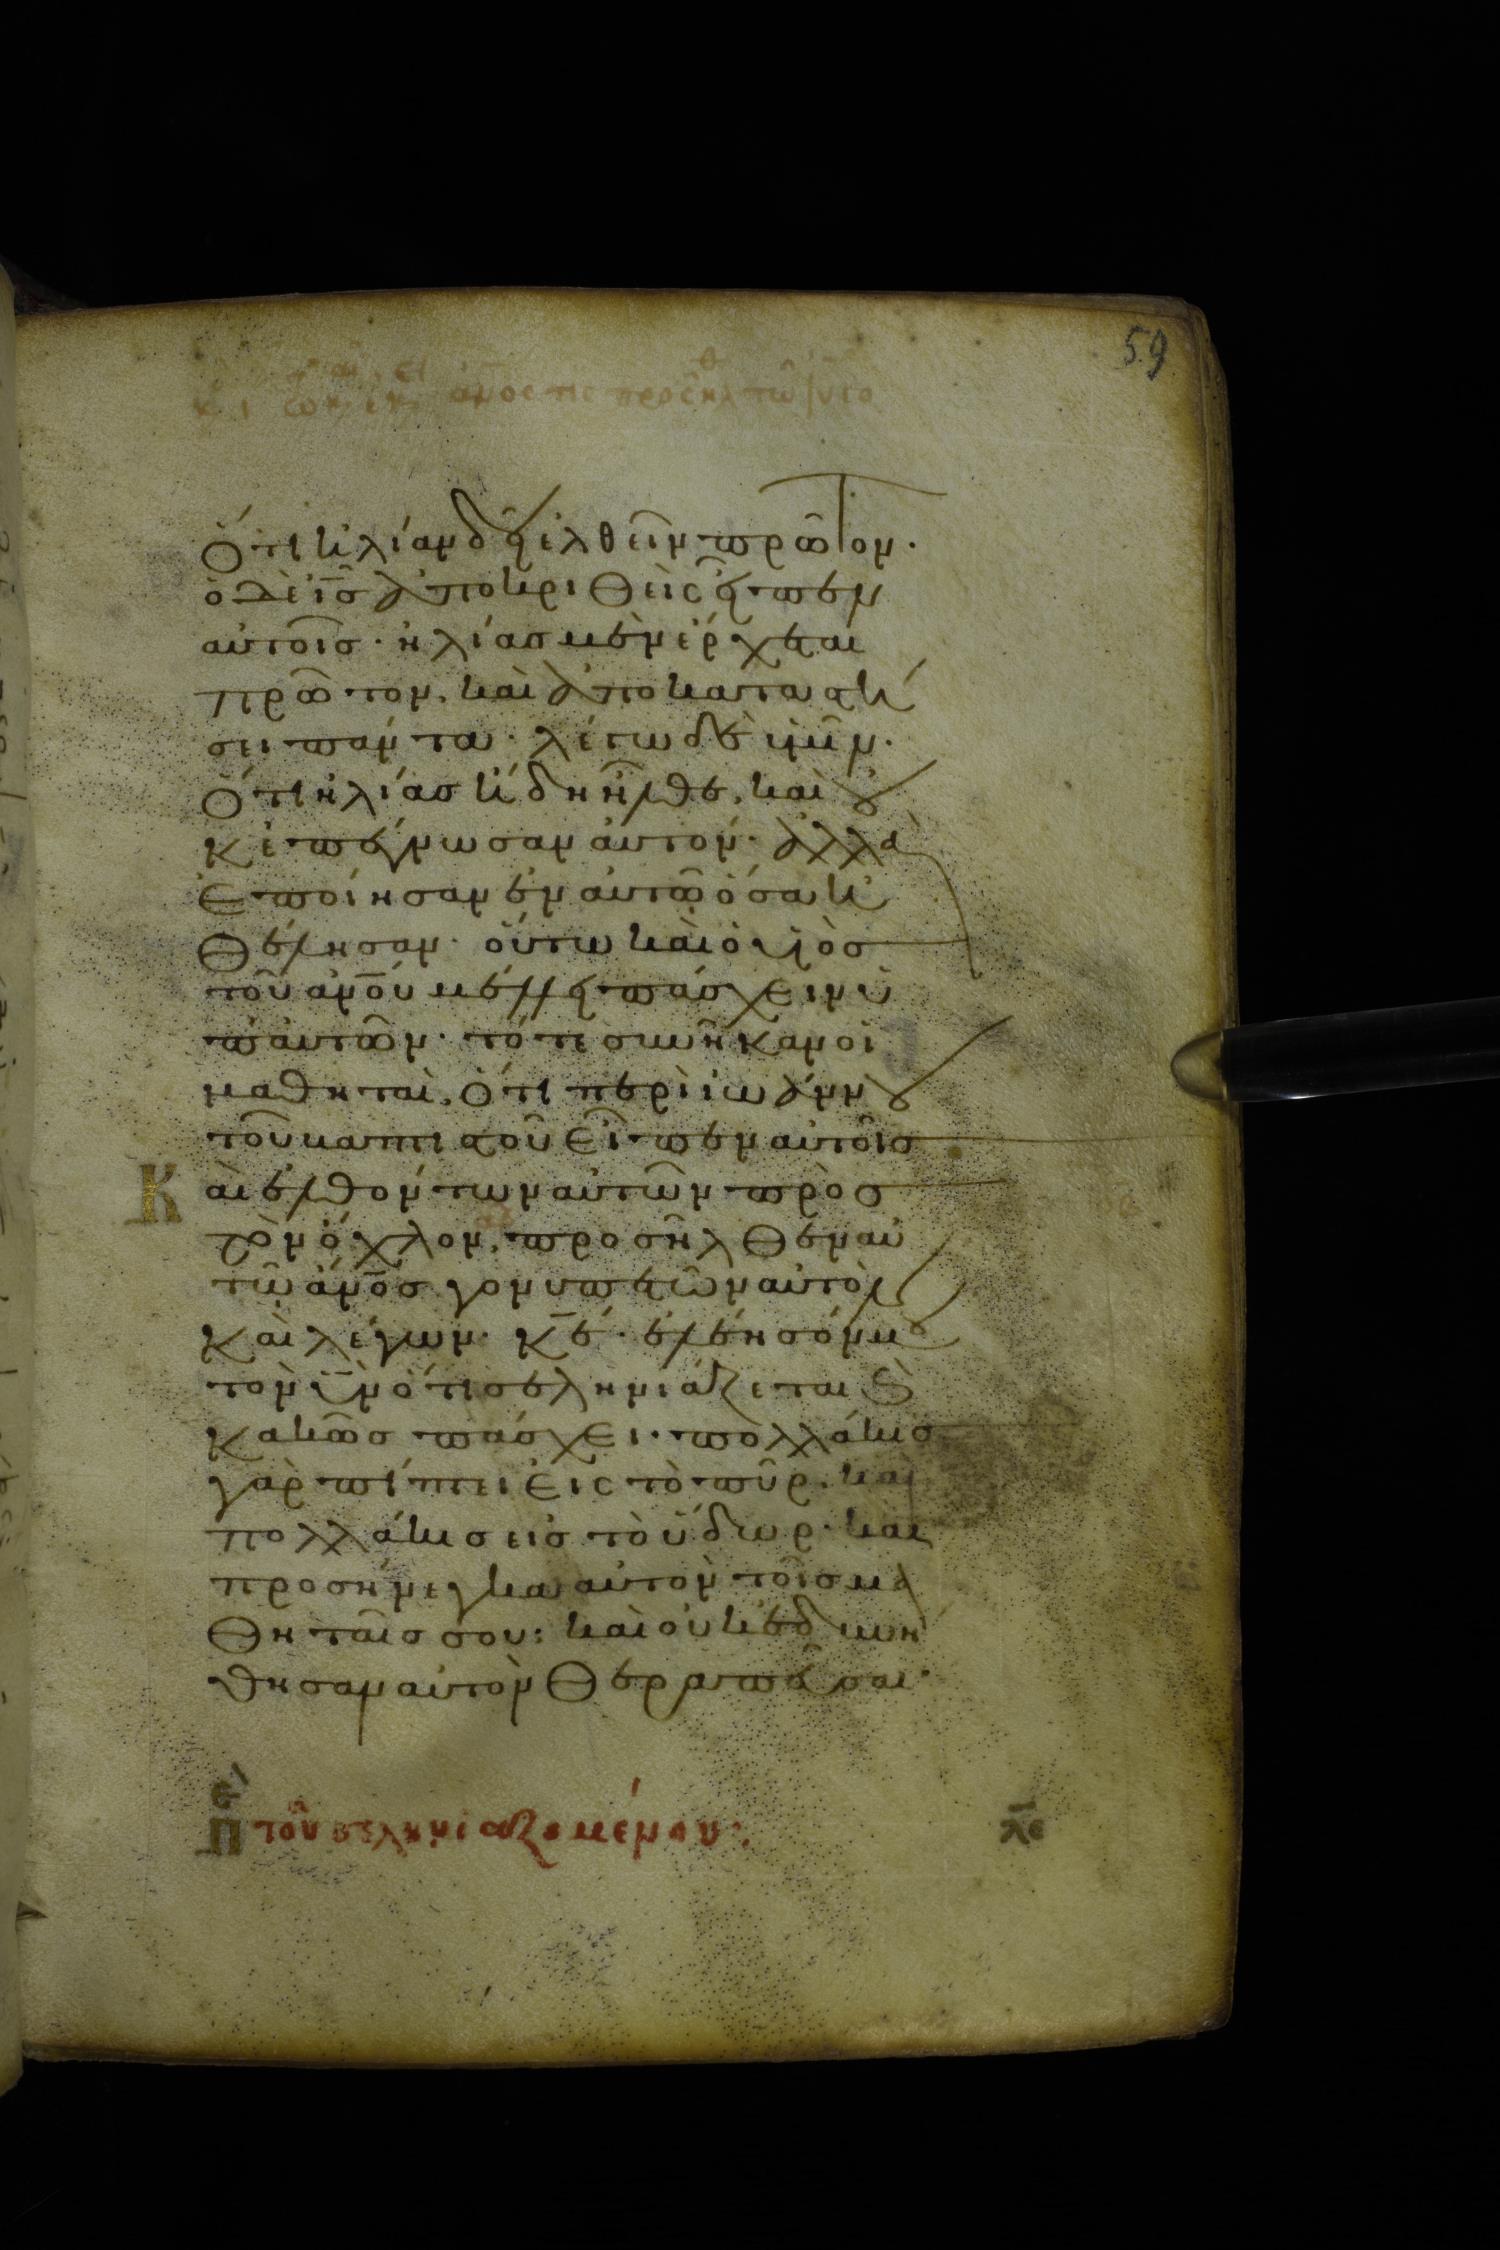 59
ἄνος τις προσῆλθ τῶ ἰῦ
ὅτι ἠλίαν δεῖ ἐλθεῖν πρῶτον·
ὁ δὲ ἰς ἀποκριθεὶς εἶπεν
αὐτοῖς· ἠλίας μὲν ἔρχεται
πρῶτον, καὶ ἀποκαταστή
σει πάντα· λέγω δὲ ὑμῖν·
ὅτι ἠλίας ἤδη ἦλθε, καὶ οὐ
κ ἐπέγνωσαν αὐτόν· ἀλλὰ
ἐποίησαν ἐν αὐτῶ ὅσα ἠ
θέλησαν· οὕτω καὶ ὁ υἱὸς
τοῦ ἀνου μέλλει πάσχειν ὑ
π' αὐτῶν· τότε συνῆκαν οἱ
μαθηταὶ, ὅτι περὶ ἰωάννου
τοῦ βαπτιστοῦ εἶπεν αὐτοῖς
Καὶ ἐλθόντων αὐτῶν πρὸς
τὸν ὄχλον, προσῆλθεν αὐ
τῶ ἄνος γονυπετῶν αὐτὸν
καὶ λέγων· κε· ἐλέησόν μου
τον υν ὅτι σεληνιάζεται καὶ
κακῶς πάσχει· πολλάκις
γὰρ πίπτει εἰς τὸ πῦρ, καὶ
πολλάκις εἰς τὸ ὕδωρ· καὶ
προσήνεγκα αὐτὸν τοῖς μα
θηταῖς σου· καὶ οὐκ ἐδυνή
θησαν αὐτὸν θεραπεῦσαι·
πε τοῦ σεληνιαζομένου· λε